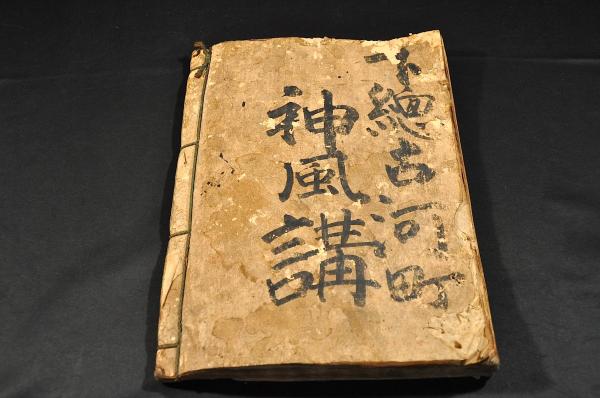 下總古河町
神風講